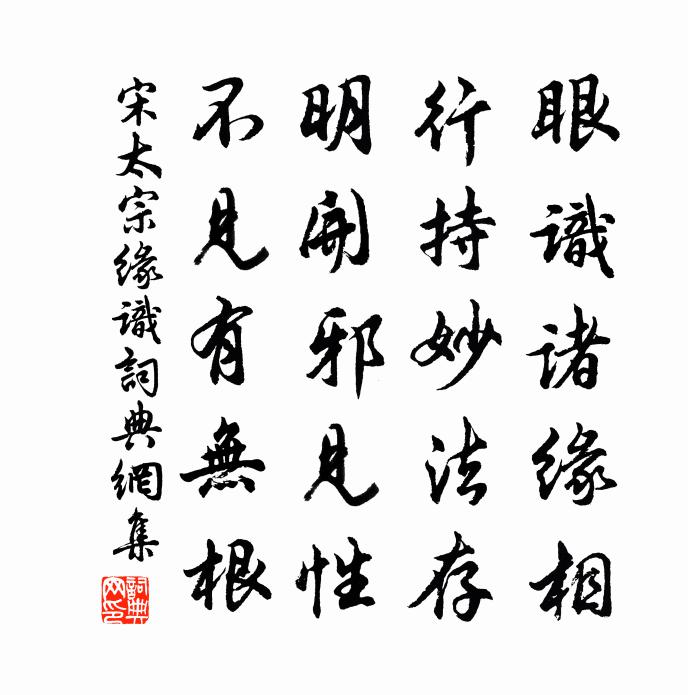 眼識諸緣相
行持妙法存
明開邪見性
不見有無根
宋太宗緣識詞典網集
詞典網印